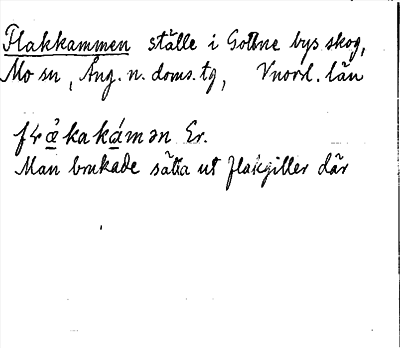 Flakkammen ställe i Gottne bys skog,
Mo sn, Ång. n. doms. tg, Vnorrl. län
flakakámən Er.
Man brukade sätta ut flakgiller där